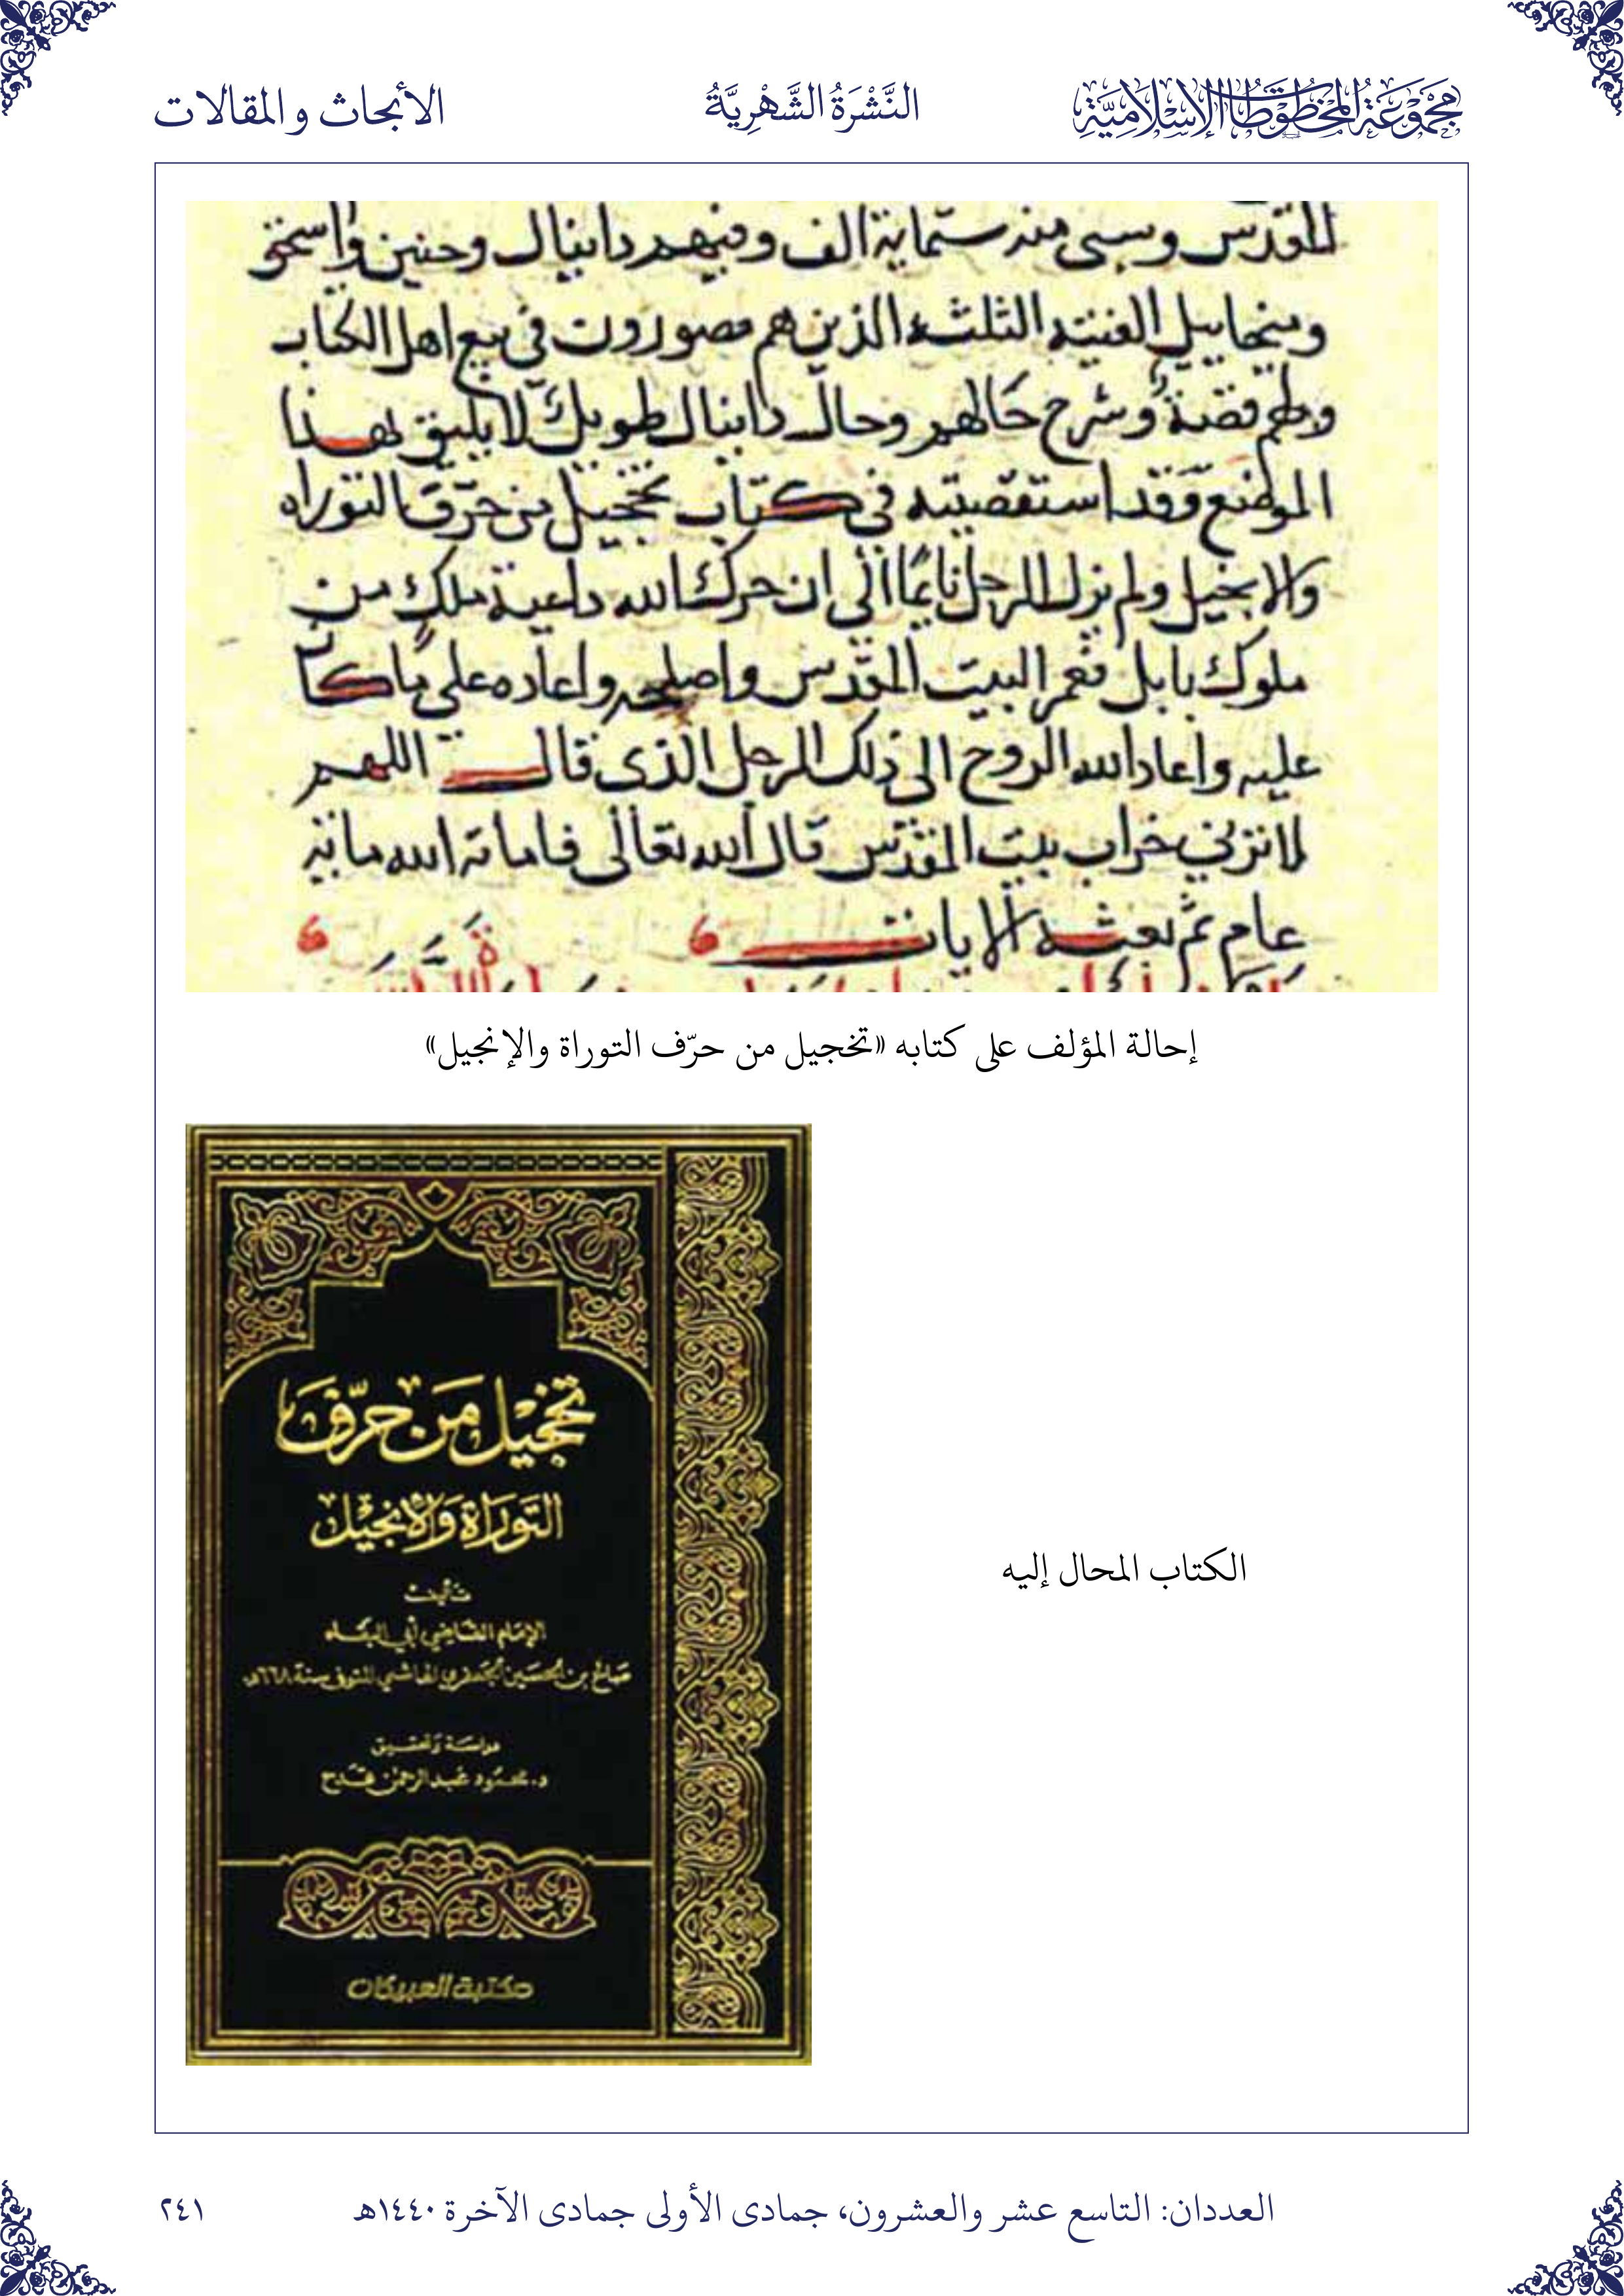 مَجْمُوعَةُ المَخْطُوطَاتِ الإِسْلَامِيَّةِ
النَّشْرَةُ الشَّهْرِيَّةُ
الأبحاث والمقالات
المقدس وسبى منه ستماية الف وفيهم دانيال وحنين واسحق
وميخاييل الفتيه الثلثه الذين هم مصورون في بيع اهل الكتاب
ولهم قصة وشرح حالهم وحال دانيال طويل لا يليق بهذا
الموضع وقد استقصيته في كتاب تخجيل من حرّف التوراه
والانجيل ولم يزل الرجل نايمًا الى ان حرك الله داعية ملك من
ملوك بابل فعمر البيت المقدس واصلحه واعاده على ما كان
عليه واعاد الله الروح الى ذلك الرجل الذي قال اللهم
لا ترني خراب بيت المقدس قال الله تعالى فاماته الله مايه
عام ثم بعثه الايات
إحالة المؤلف على كتابه «تخجيل من حرّف التوراة والإنجيل»
تخجيل مَن حرّفَ
التَّوراة وَالإنجيل
تأليف
الإمام القاضي أبي البقاء
صالح بن الحسين الجعفري الهاشمي المتوفى سنة ٦٦٨هـ
دراسة وتحقيق
د. محمود عبدالرحمن قدح
مكتبة العبيكان
الكتاب المحال إليه
العددان: التاسع عشر والعشرون، جمادى الأولى جمادى الآخرة ١٤٤٠هـ
٢٤١